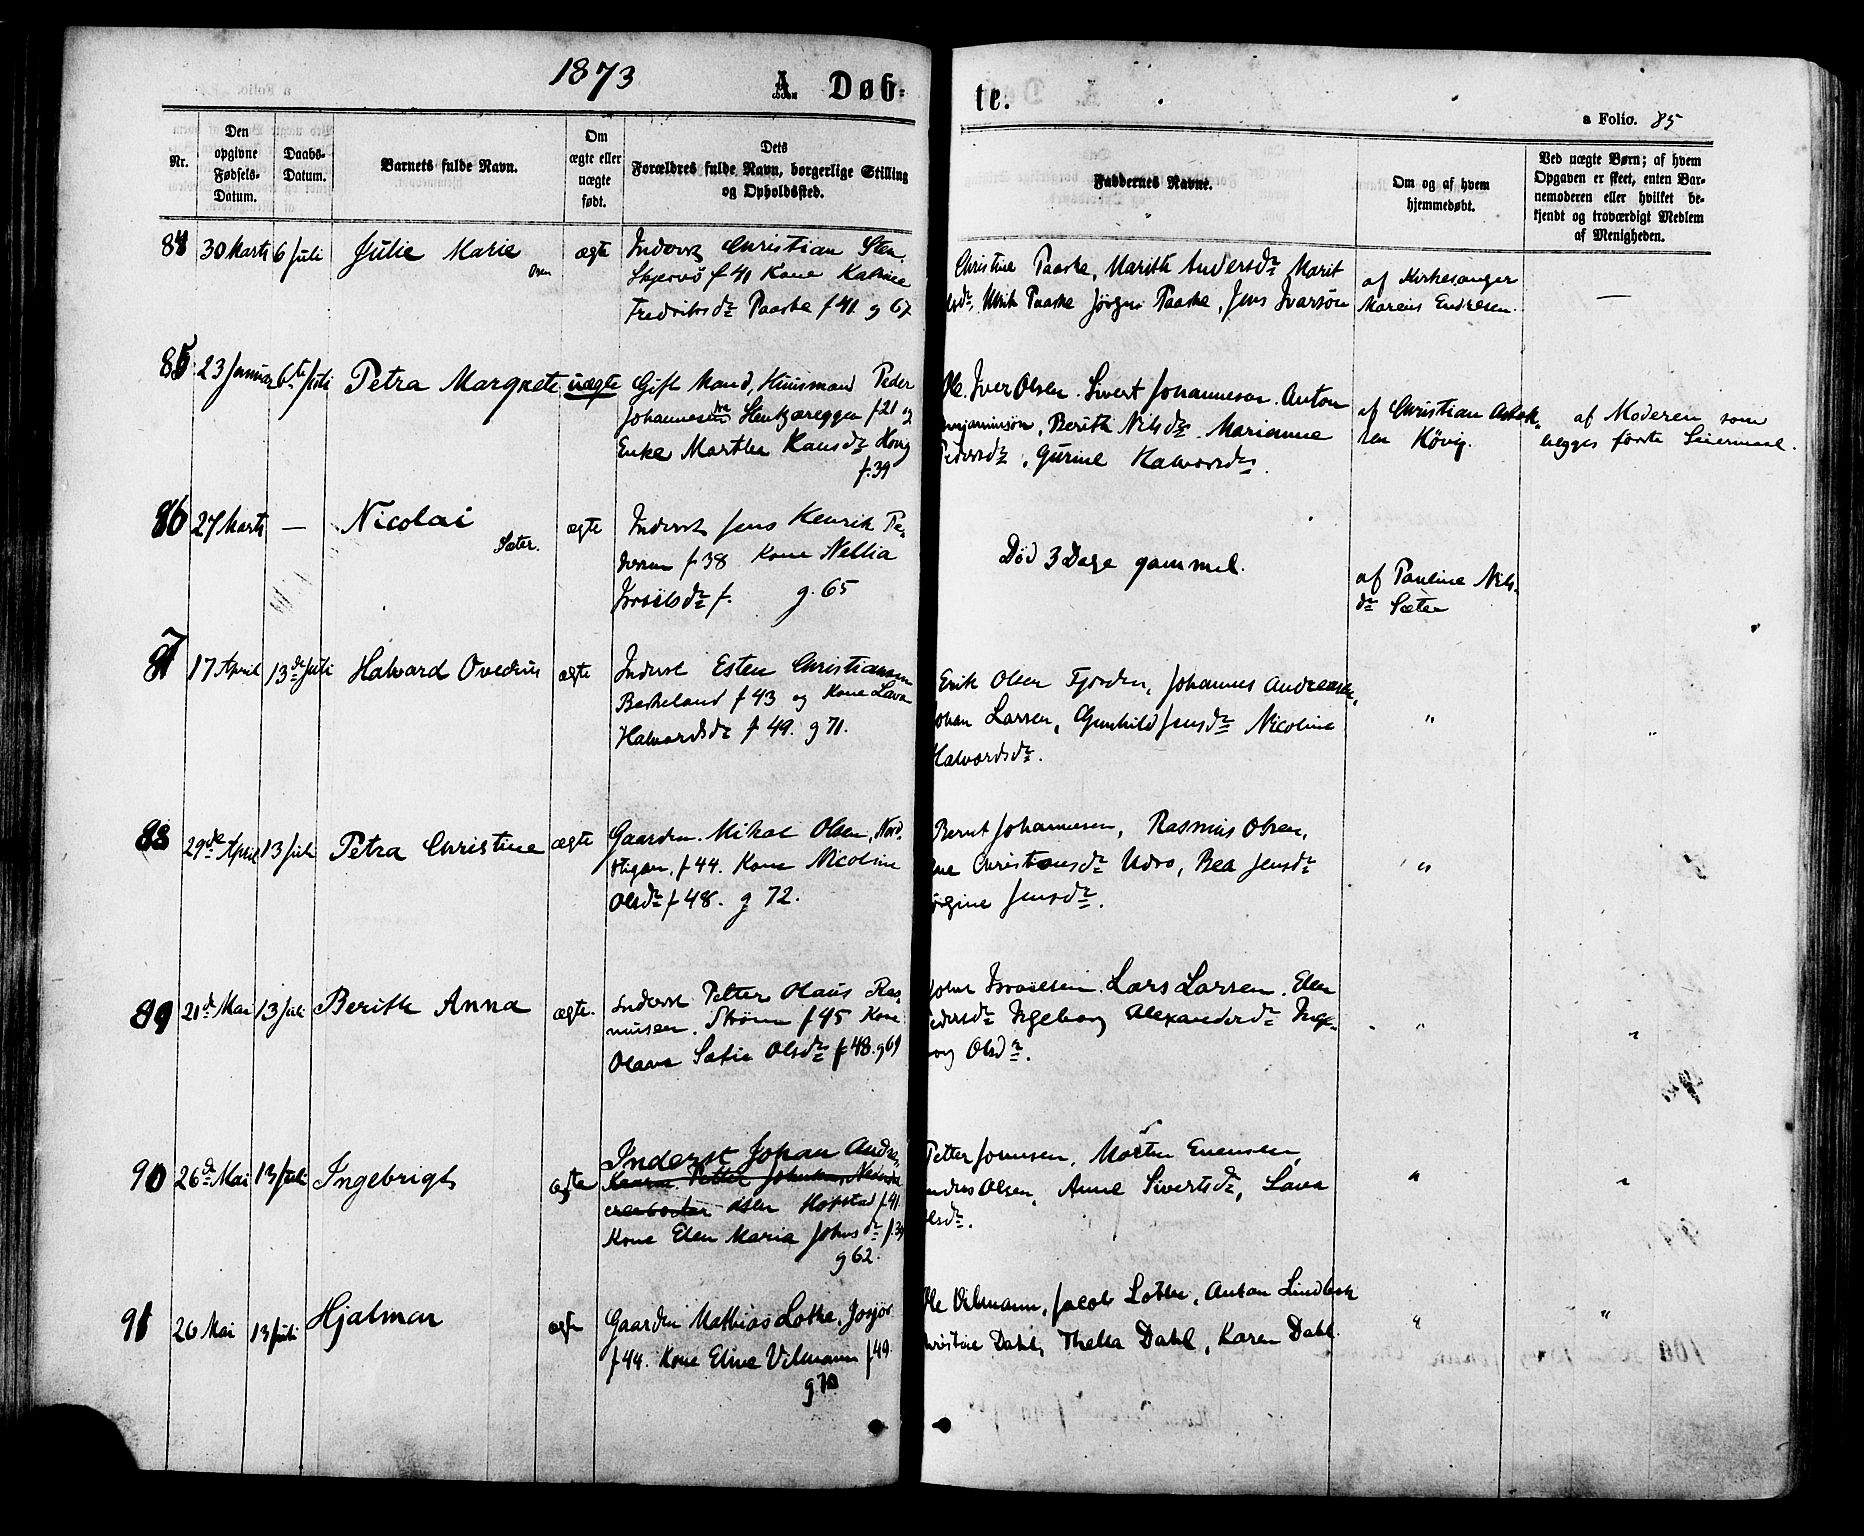 1873
A. Døb-
te.
a Folio. 85
Nr.
Den opgivne Fødsels-Datum.
Daabs-Datum.
Barnets fulde Navn.
Om ægte eller uægte født.
Dets Forældres fulde Navn, borgerlige Stilling og Opholdssted.
Faddernes Navne.
Om og af hvem hjemmedøbt.
Ved uægte Børn; af hvem Opgaven er skeet, enten Barnemoderen eller hvilket bekjendt og troværdigt Medlem af Menigheden.
84 30 Marts 6 Juli Julie Marie ægte Inderst Christian Sten
Skjervø f 41 Kone
Fredriksdr Paaske f 41 g 67
Christine Paaske, Marith Andersdr Marit
Ulrik Paaske Jørgen Paaske, Jens Ivarsøn
af Kirkesanger
Marius Endresen.
—
85 23 Januar 6te Juli Petra Margrete uægte Gift Mand, Huusmand Peder
Johannesen f 21 og
Enke Martha Hansdr
f. 39
Ole Iver Olsen. Sivert Johannesen. Anton
Benjaminsøn, Berith Nilsdr Marianne
Pedersdr, Gurine Halvorsdr.
af Christian
Høvig.
af Moderen som
begges første Leiermaal.
86 27 Marts — Nicolai ægte Inderst Jens Henrik Pe-
Sæter.
dersen f 38 Kone
Israelsdr f. g. 65
Død 3 Dage gammel.
af Pauline Nils-
dr Sæter
87 17 April 13de Juli Halvard Ovedius ægte Inderst Esten Christiansen
Berkeland f 43 og Kone Lava
Halvardsdr f 49. g 71.
Erik Olsen Fjorden, Johannes Andreasen,
Johan Larsen, Gunhild Jensdr Nicoline
Halvardsdr.
"
"
88 29de April 13 Juli Petra Christine ægte Gaardm. Mikal Olsen, Nord-
stigen, f 44. Kone Nicoline
Olsdr f 48. g 72.
Bernt Johannesen, Rasmus Olsen,
Christensdr Udro, Bea Jensdr
Jørgine Jensdr.
"
89 21de Mai 13 Juli Berith Anna ægte. Inderst Petter Olaus Ras-
musen. Strøm f 45 Kone
Olava Sofie Olsdr f 48. g 69
Johs Israelsen. Lars Larsen. Elen
Pedersdr Ingeborg Alexandersdr Inge-
borg Olsdr.
"
"
90 26de Mai 13 Juli Ingebrigt ægte Inderst Johan Andre-
asen Hofstad f 41
Kone Elen Maria Johnsdr f. 39
g 62.
Petter Jonsen, Morten Evensen,
Andreas Olsen, Anne Sivertsdr, Lava
Olsdr.
"
"
91 26 Mai 13 Juli Hjalmar ægte Gaardm Mathias Lothe, Josjør
f 44. Kone Elise Velmann f 49.
g 70
Ole Velmann, Jacob Lothe, Anton Lindbak
Christine Dahl, Thella Dahl, Karen Dahl.
"
"